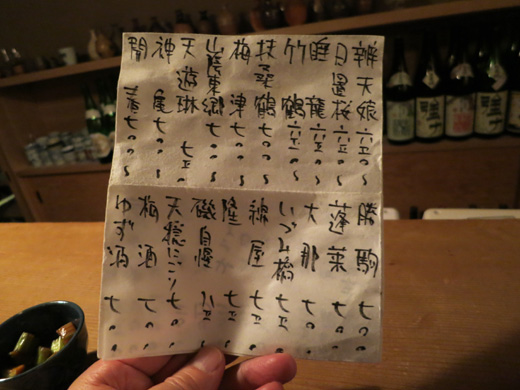 辨天娘 六五〇〜
日置桜 六五〇〜
睡龍 六五〇〜
竹鶴 六五〇〜
扶桑鶴 七〇〇〜
梅津 七〇〇〜
山陰東郷 七〇〇〜
天遊琳 七五〇〜
神亀 七〇〇〜
開春 七〇〇〜
勝駒 七〇〇
蓬莱 七〇〇
大那 七〇〇
いづみ橋 七五〇
綿屋 七五〇
隆 七五〇
磯自慢 八五〇
天穏にごり 七〇〇
梅酒 七〇〇
ゆず酒 七〇〇